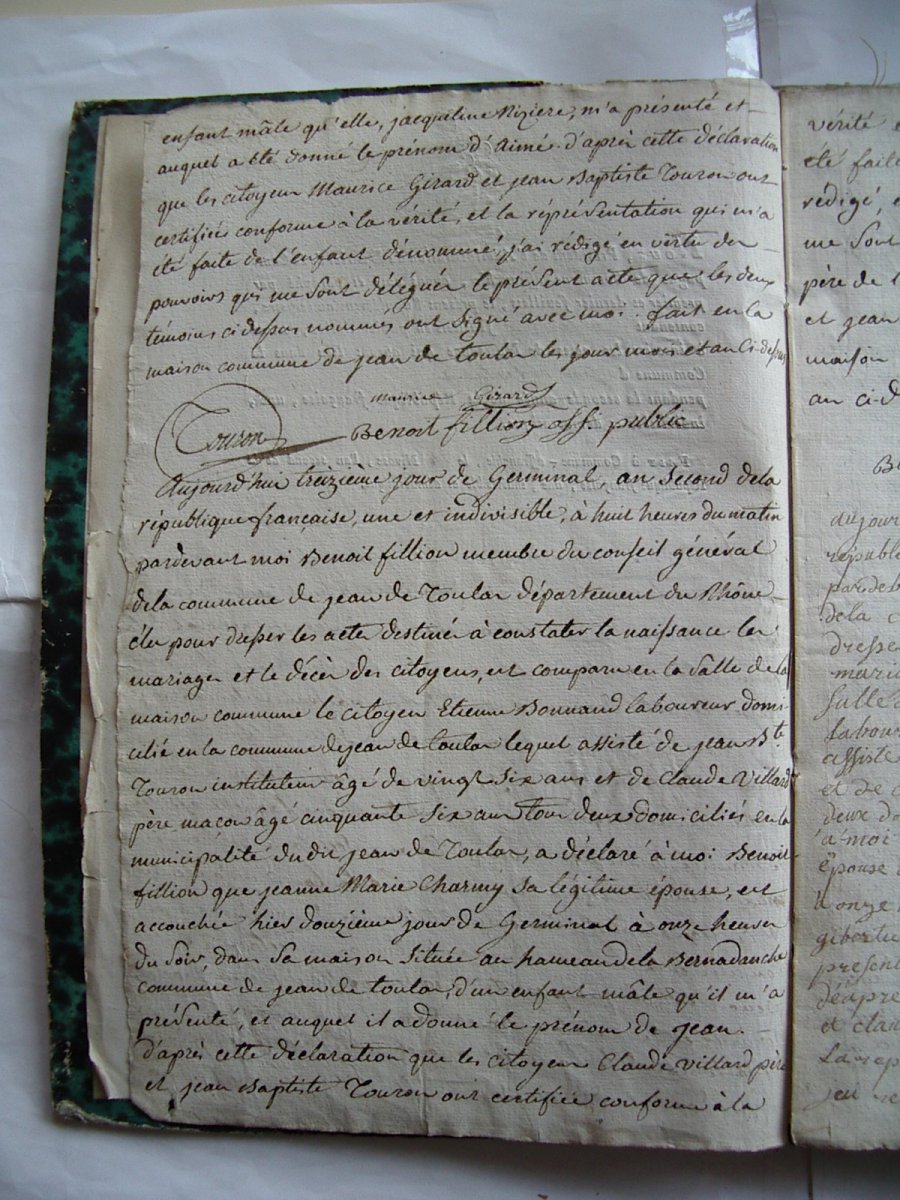 enfant mâle qu'elle, jacqueline Rizière, m'a présenté et
auquel a été donné le prénom d'Aimé. d'après cette déclaration
que les citoyens Maurice Girard et jean Baptiste Touron ont
certifiée conforme à la vérité, et la réprésentation qui m'a
été faite de l'enfant dénommé, j'ai rédigé en vertu des
pouvoirs qui me sont délégués le présent acte que les deux
témoins ci dessus nommés ont signé avec moi. fait en la
maison commune de jean de toulas les jour mois et an ci-dessus
maurice Girard
Touron Benoit fillion off. public
Aujourd'hui treizième jour de Germinal, an second de la
république française, une et indivisible, à huit heures du matin
pardevant moi Benoit fillion membre du conseil général
de la commune de jean de Toulas département du Rhône
élu pour dresser les actes destinés à constater la naissance les
mariages et le décès des citoyens, est comparu en la salle de la
maison commune le citoyen Etienne Bonnand laboureur domi
cilié en la commune de jean de toulas lequel assisté de jean Bte.
Touron instituteur âgé de vingt six ans et de Claude Villard
père maçon âgé cinquante six ans tous deux domiciliés en la
municipalité du dit jean de Toulas, a déclaré à moi Benoit
fillion que jeanne Marie Charmy sa légitime épouse, est
accouchée hier douzième jour de Germinal à onze heures
du soir, dans sa maison située au hameau de la Bernadanche
commune de jean de toulas, d'un enfant mâle qu'il m'a
présenté, et auquel il a donné le prénom de jean.
d'après cette déclaration que les citoyens Claude Villard père
et jean Baptiste Touron ont certifiée conforme à la
vérité
été faite
rédigé,
me sont
père de l
et jean
maison
au ci-d
aujour
républ
de la c
dresse
mari
salle
labour
assisté
et de c
deux do
à moi
épouse
onze
présen
et clau